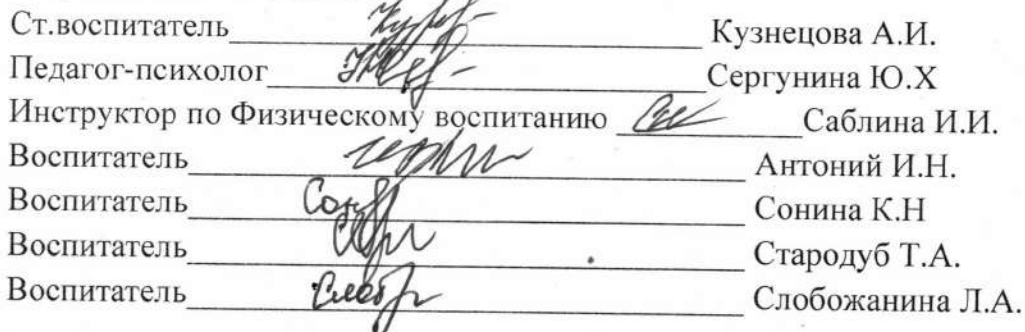 Ст.воспитатель Кузнецова А.И.
Педагог-психолог Сергунина Ю.Х
Инструктор по Физическому воспитанию Саблина И.И.
Воспитатель Антоний И.Н.
Воспитатель Сонина К.Н
Воспитатель Стародуб Т.А.
Воспитатель Слобожанина Л.А.